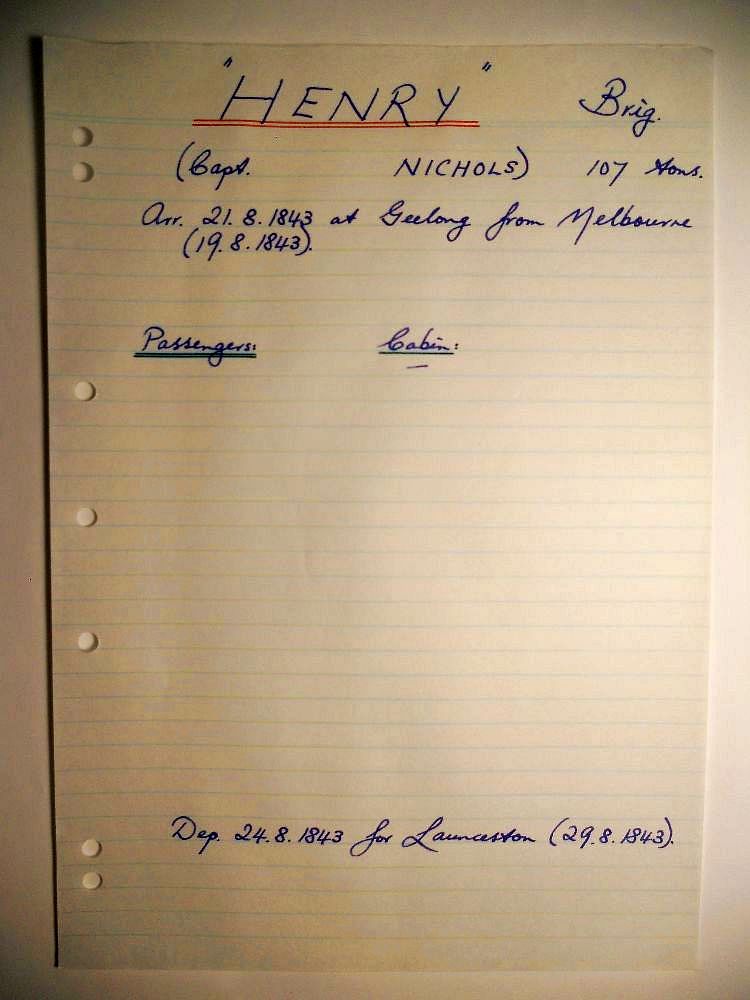 "HENRY" Brig.
(Capt. NICHOLS) 107 tons.
Arr. 21.8.1843 at Geelong from Melbourne
(19.8.1843).
Passengers: Cabin:
—
Dep. 24.8.1843 for Launceston (29.8.1843).